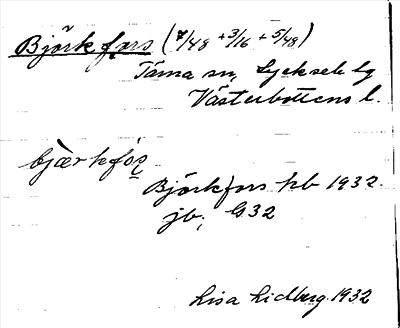 Björkfors (7/48 + 3/16 + 5/48)
Tärna sn, Lycksele lg
Västerbottens l.
bjærkfóʂ
Björkfors kb 1932.
jb, G32
Lisa Lidberg. 1932